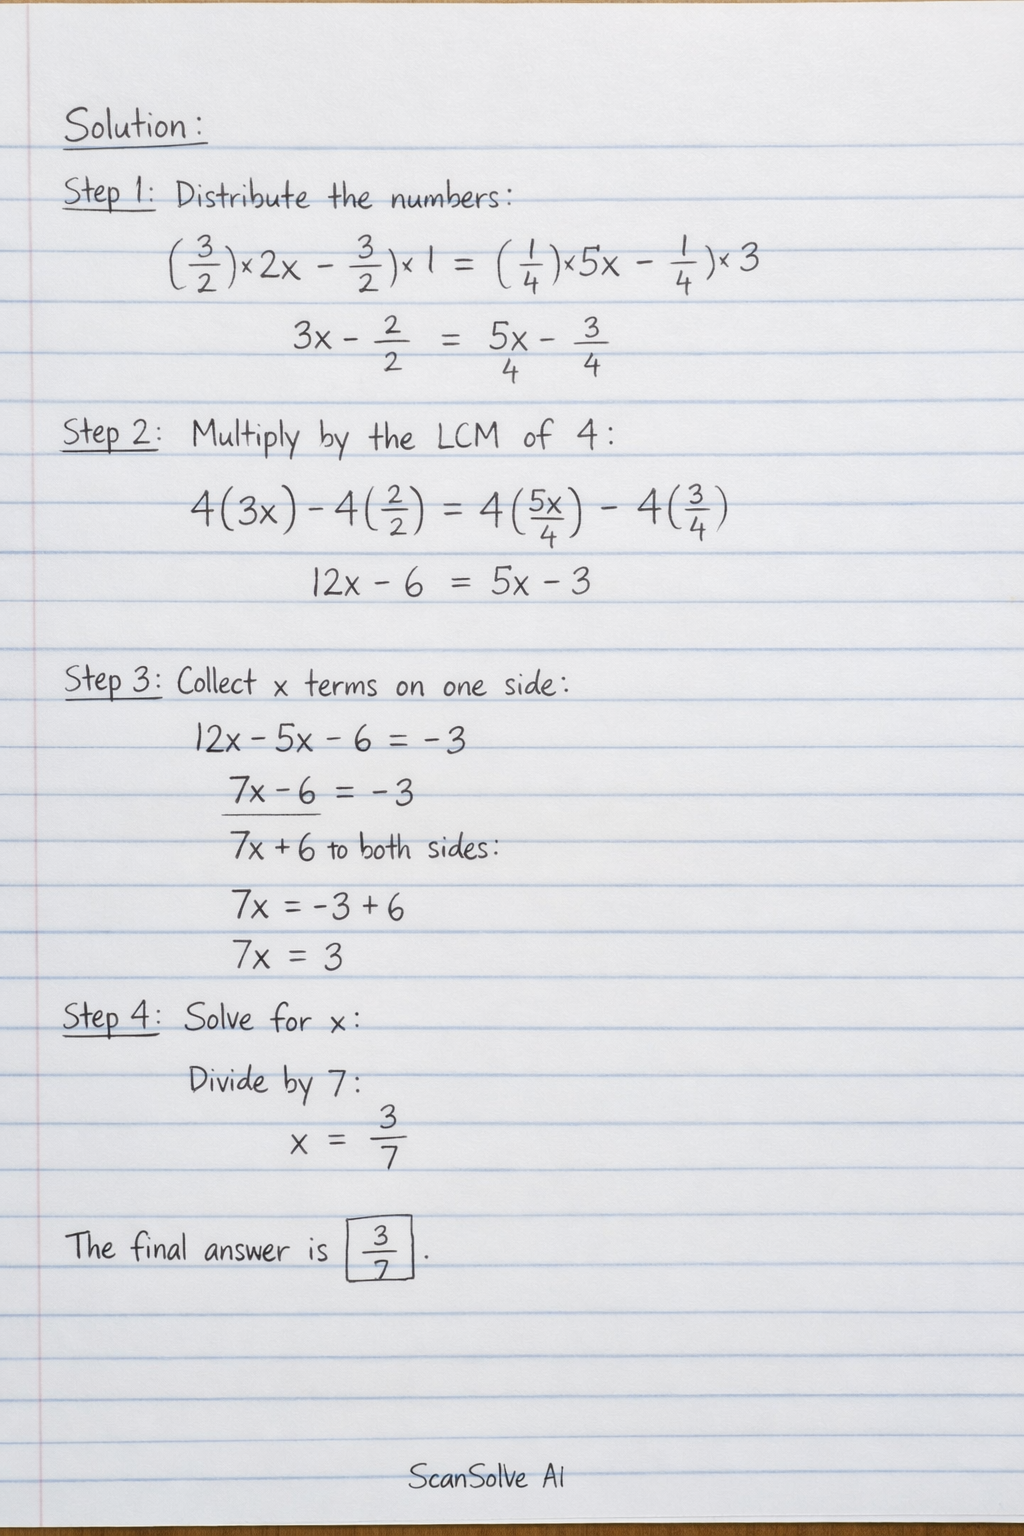 Solution:
Step 1: Distribute the numbers:
(3/2)×2x − 3/2)×1 = (1/4)×5x − 1/4)×3
3x − 2/2 = 5x/4 − 3/4
Step 2: Multiply by the LCM of 4:
4(3x) − 4(2/2) = 4(5x/4) − 4(3/4)
12x − 6 = 5x − 3
Step 3: Collect x terms on one side:
12x − 5x − 6 = −3
7x − 6 = −3
7x + 6 to both sides:
7x = −3 + 6
7x = 3
Step 4: Solve for x:
Divide by 7:
x = 3/7
The final answer is 3/7.
ScanSolve AI